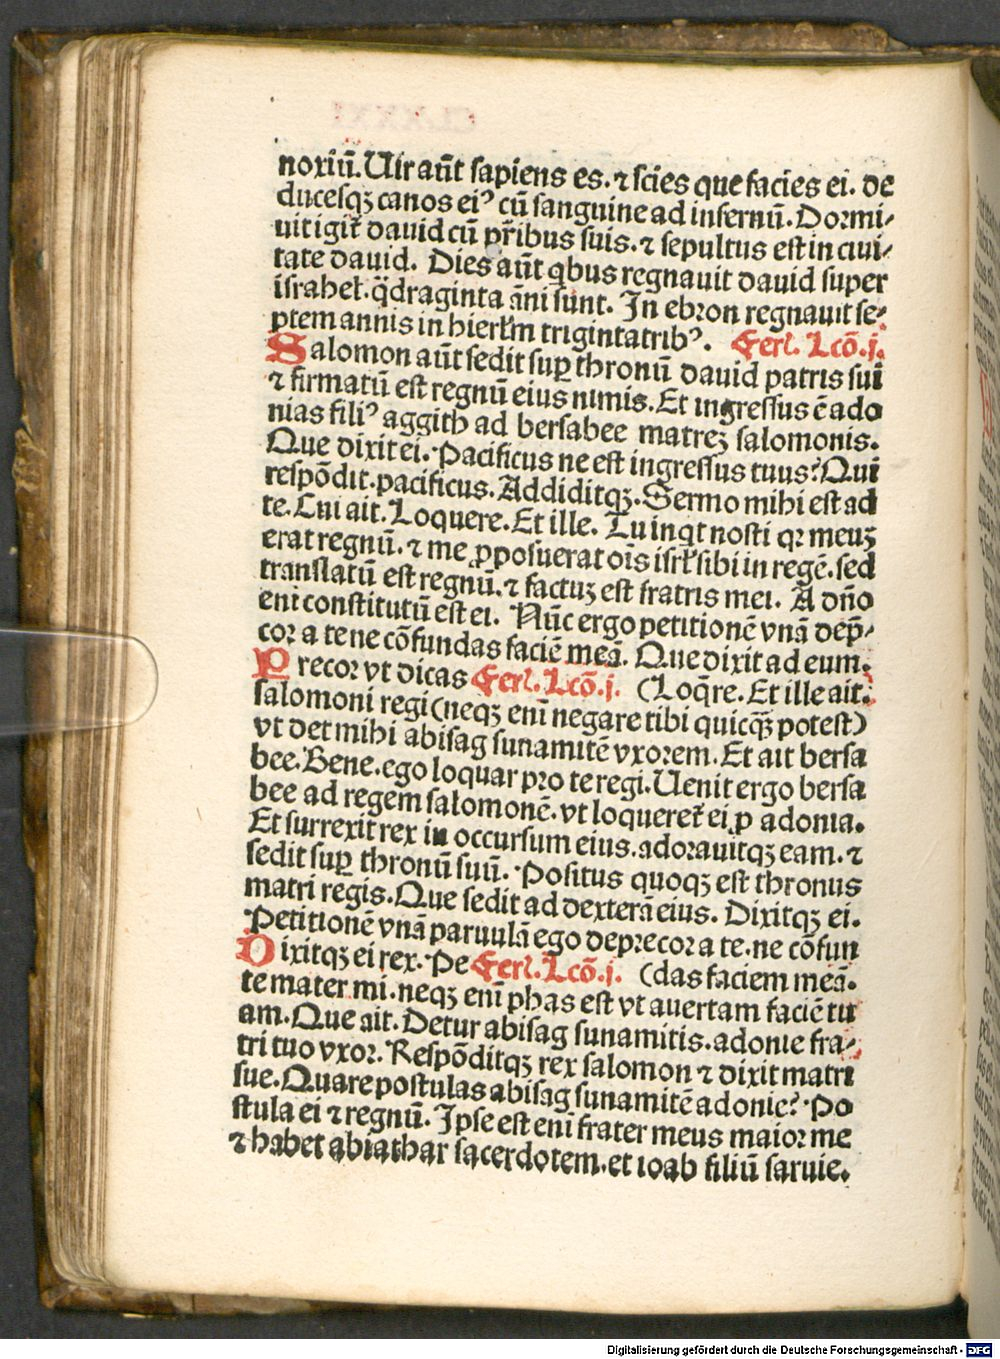 noxiū. Uir aūt sapiens es. ⁊ scies que facies ei. de
ducesqꝫ canos eiꝰ cū sanguine ad infernū. Dormi⸗
uit igit᷑ dauid cū pr̄ibus suis. ⁊ sepultus est in ciui⸗
tate dauid. Dies aūt qͥbus regnauit dauid super
israhel. q̄draginta āni sunt. In ebron regnauit se⸗
ptem annis in hierl̄m triginta tribꝰ. Feri. Lcō. j.
Salomon aūt sedit suꝑ thronū dauid patris sui
⁊ firmatū est regnū eius nimis. Et ingressus ē ado
nias filiꝰ aggith ad bersabee matreꝫ salomonis.
Que dixit ei. Pacificus ne est ingressus tuus? Qui
respōdit. pacificus. Addiditqꝫ. Sermo mihi est ad
te. Cui ait. Loquere. Et ille. Tu inqͥt nosti qꝛ meuꝫ
erat regnū. ⁊ me ꝓposuerat oīs isrl̄ sibi in regē. sed
translatū est regnū. ⁊ factuꝫ est fratris mei. A dn̄o
eni constitutū est ei. Nūc ergo petitionē vnā dep̄⸗
cor a te ne cōfundas faciē meā. Que dixit ad eum.
Precor vt dicas Feri. Lcō. j. (Loq̄re. Et ille ait.
salomoni regi (neqꝫ enī negare tibi quicqꝫ̄ potest)
vt det mihi abisag sunamitē vxorem. Et ait bersa
bee. Bene. ego loquar pro te regi. Uenit ergo bersa
bee ad regem salomonē. vt loqueret᷑ ei ꝓ adonia.
Et surrexit rex in occursum eius. adorauitqꝫ eam. ⁊
sedit suꝑ thronū suū. Positus quoqꝫ est thronus
matri regis. Que sedit ad dexterā eius. Dixitqꝫ ei.
Petitionē vnā paruulā ego deprecor a te. ne cōfun
Dixitqꝫ ei rex. Pe Feri. Lcō. j. (das faciem meā.
te mater mi. neqꝫ enī phas est vt auertam faciē tu
am. Que ait. Detur abisag sunamitis. adonie fra⸗
tri tuo vxor. Respōditqꝫ rex salomon ⁊ dixit matri
sue. Quare postulas abisag sunamitē adonie? Po
stula ei ⁊ regnū. Ipse est enī frater meus maior me
⁊ habet abiathar sacerdotem. et ioab filiū saruie.
Digitalisierung gefördert durch die Deutsche Forschungsgemeinschaft - DFG